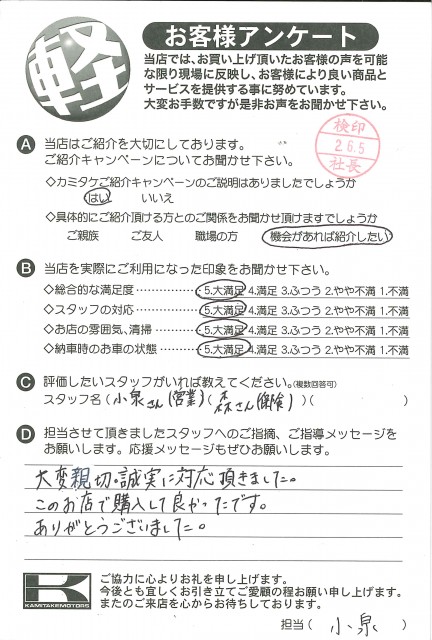 軽
お客様アンケート
当店では、お買い上げ頂いたお客様の声を可能
な限り現場に反映し、お客様により良い商品と
サービスを提供する事に努めています。
大変お手数ですが是非お声をお聞かせ下さい。
検印
2.6.5
社長
A 当店はご紹介を大切にしております。
ご紹介キャンペーンについてお聞かせ下さい。
◇カミタケご紹介キャンペーンのご説明はありましたでしょうか
はい いいえ
◇具体的にご紹介頂ける方とのご関係をお聞かせ頂けますでしょうか
ご親族 ご友人 職場の方 機会があれば紹介したい
B 当店を実際にご利用になった印象をお聞かせ下さい。
◇総合的な満足度 ‥‥‥‥‥ 5.大満足 4.満足 3.ふつう 2.やや不満 1.不満
◇スタッフの対応 ‥‥‥‥‥ 5.大満足 4.満足 3.ふつう 2.やや不満 1.不満
◇お店の雰囲気、清掃 ‥‥‥ 5.大満足 4.満足 3.ふつう 2.やや不満 1.不満
◇納車時のお車の状態 ‥‥‥ 5.大満足 4.満足 3.ふつう 2.やや不満 1.不満
C 評価したいスタッフがいれば教えてください。(複数回答可)
スタッフ名(小泉さん(営業)(森さん(保険))( )
D 担当させて頂きましたスタッフへのご指摘、ご指導メッセージを
お願いします。応援メッセージもぜひお願いします。
大変親切・誠実に対応頂きました。
このお店で購入して良かったです。
ありがとうございました。
K
KAMITAKEMOTORS
ご協力に心よりお礼を申し上げます。
今後とも宜しくお引き立てご愛顧の程お願い申し上げます。
またのご来店を心からお待ちしております。
担当( 小泉 )